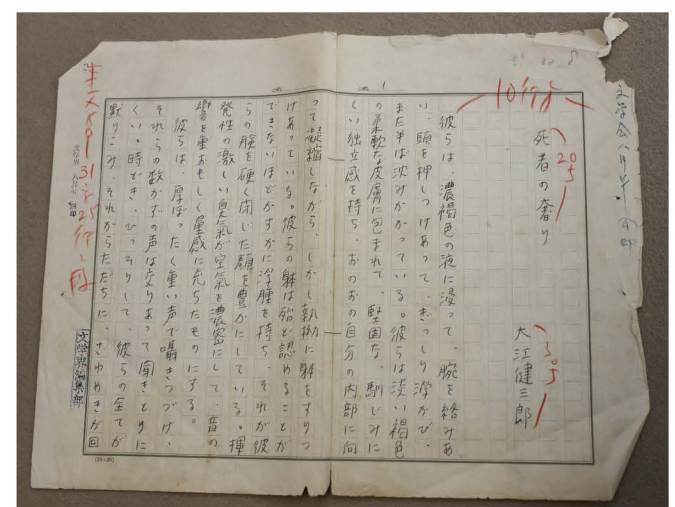 文学会八月号
1
10行分
死者の奢り
20
5
大江健三郎
3.5
彼らは、濃褐色の液に浸って、腕を絡みあ
い、頭を押しつけあって、ぎっしり浮かび、
また半ば沈みかかっている。彼らは淡い褐色
の柔軟な皮膚に包まれて、堅固な、馴じみに
くい独立感を持ち、おのおの自分の内部に向
って凝縮しながら、しかし執拗に躰をすりつ
けあっている。彼らの躰は殆ど認めることが
できないほどかすかに浮腫を持ち、それが彼
らの瞼を硬く閉じた顔を豊かにしている。揮
発性の激しい臭気が空気を濃密にして、音の
響を重おもしく量感に充ちたものにする。
彼らは、厚ぼったく重い声で囁きつづけ、
それらの数かずの声は交りあって聞きとりに
くい。時どき、ひっそりして、彼らの全てが
黙りこみ、それからただちに、ざわめきが回
文学界編集部
(20×20)